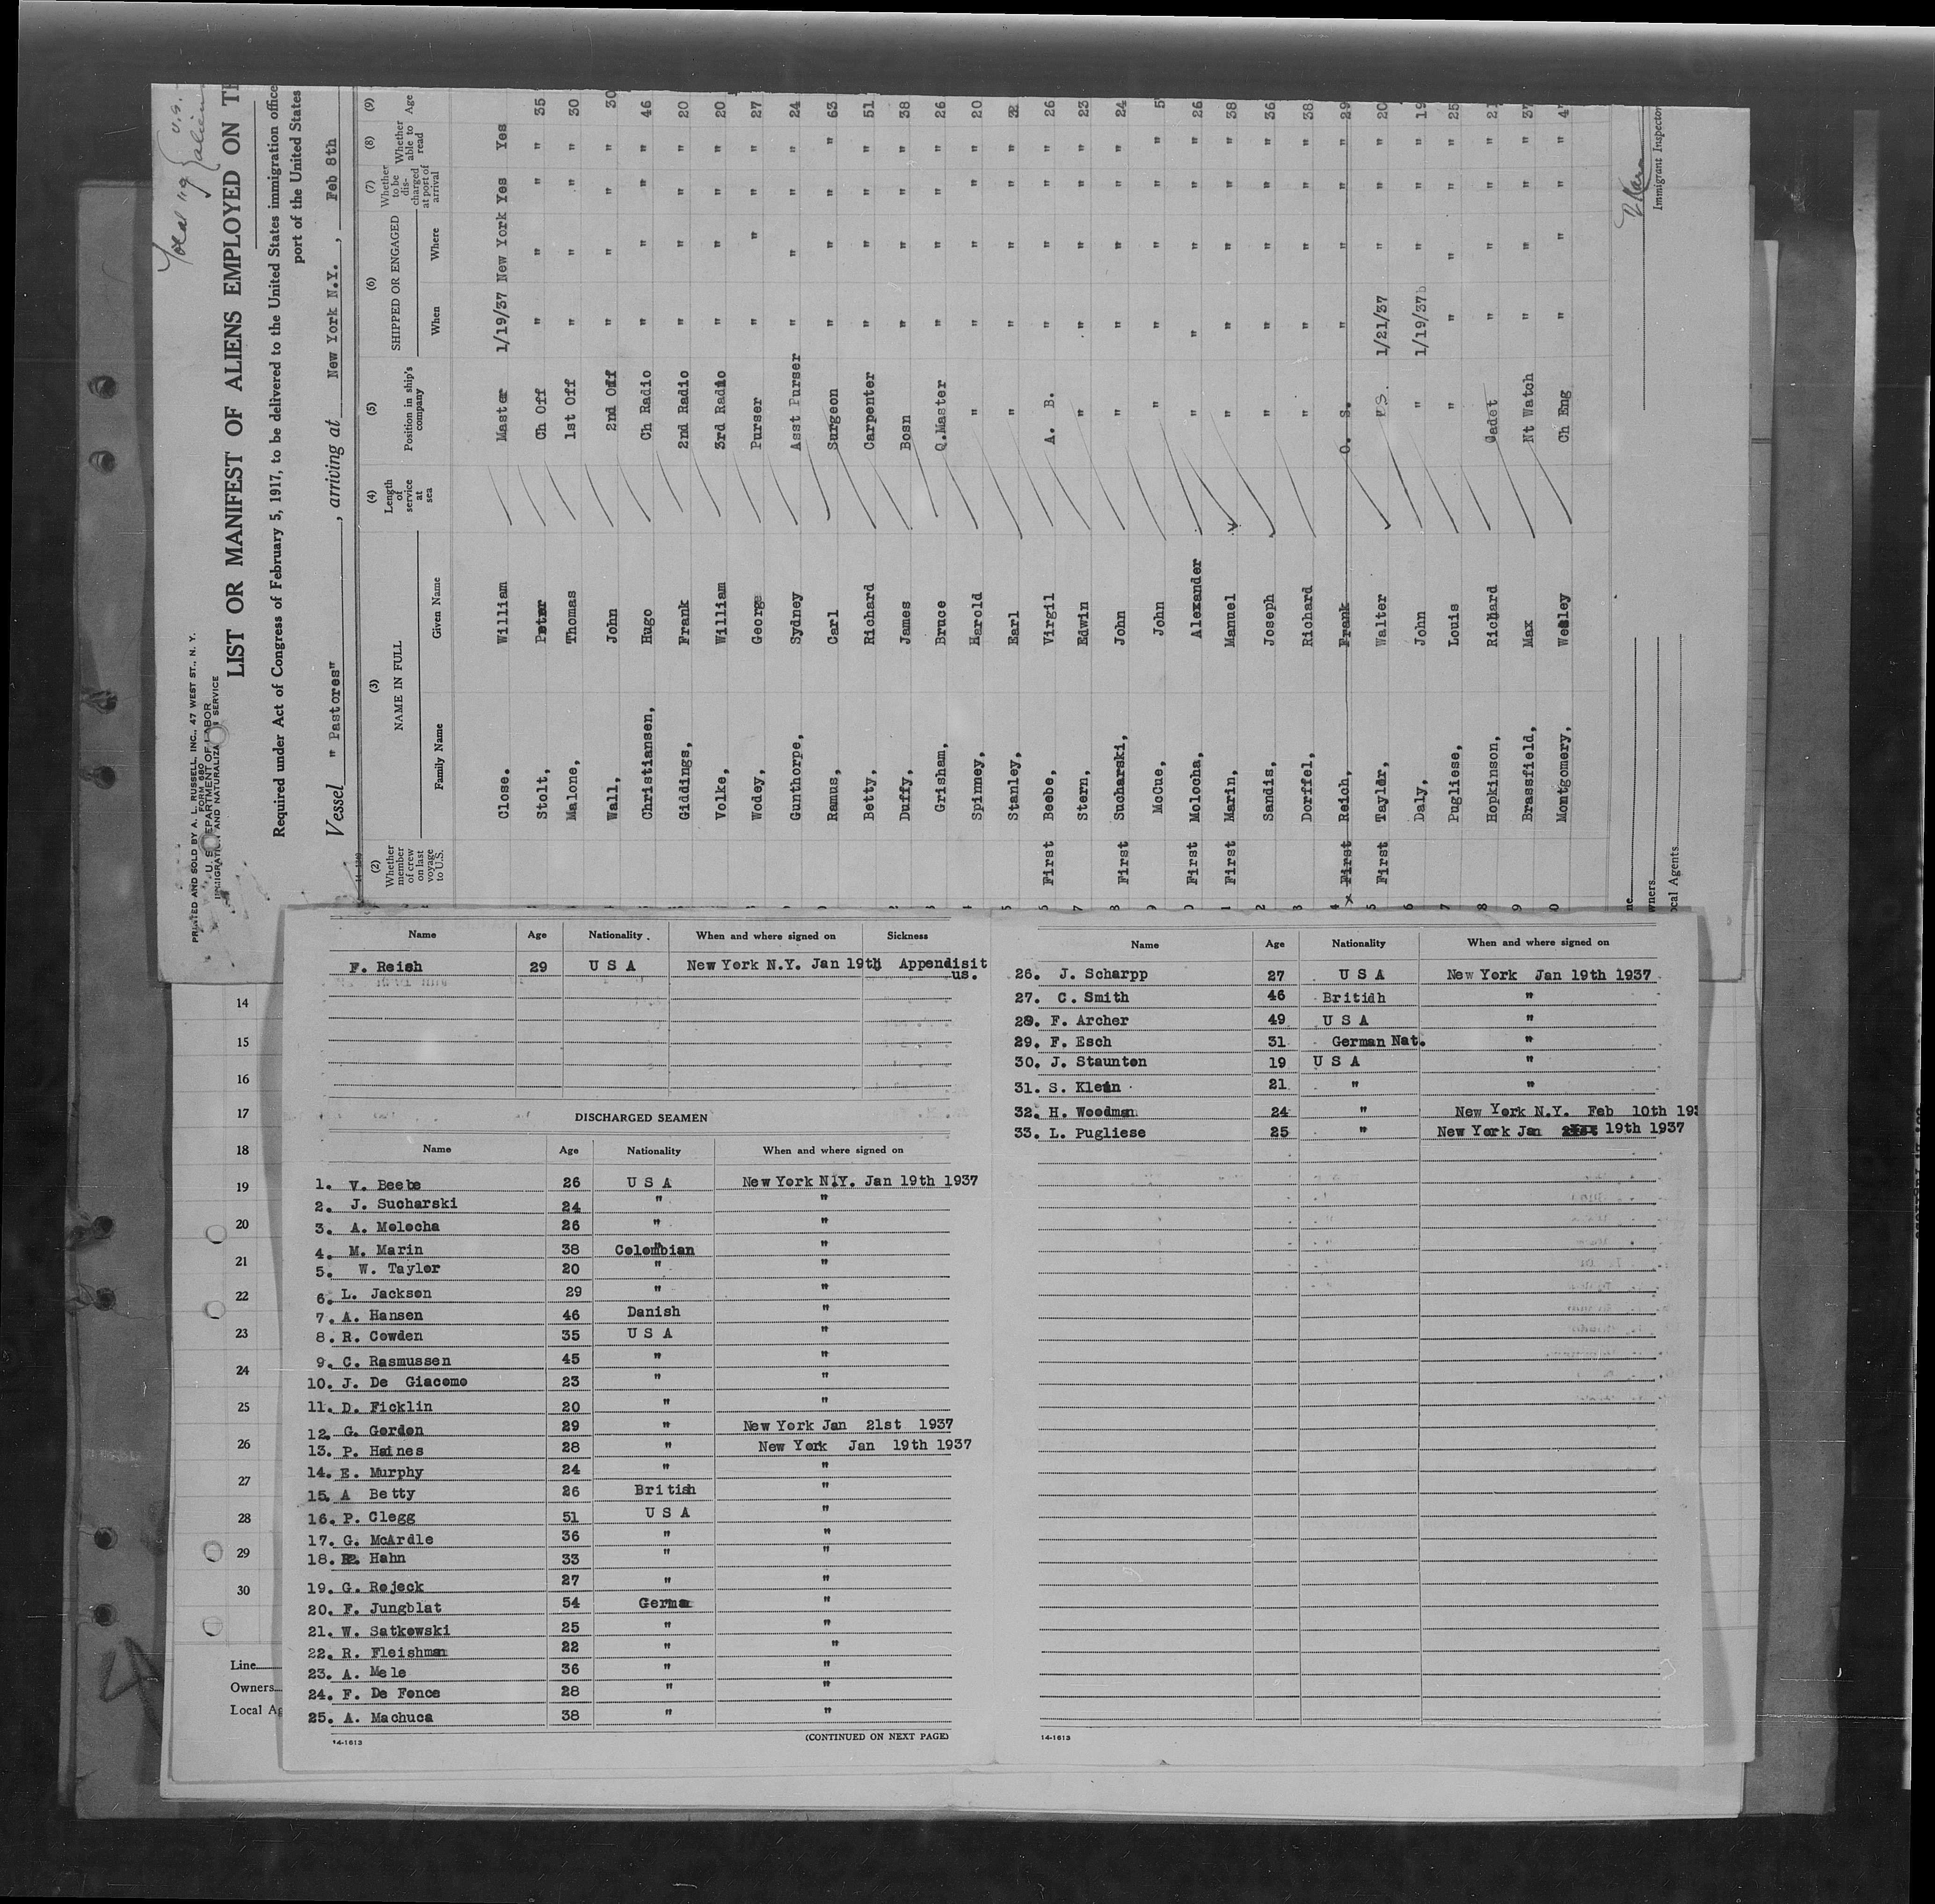 Total 119 { U.S. aliens
PRINTED AND SOLD BY A. L. RUSSELL, INC., 47 WEST ST., N. Y.
FORM 680
U. S. DEPARTMENT OF LABOR
IMMIGRATION AND NATURALIZATION SERVICE
LIST OR MANIFEST OF ALIENS EMPLOYED ON TH
Required under Act of Congress of February 5, 1917, to be delivered to the United States immigration office
port of the United States
Vessel " Pastores" , arriving at New York N.Y. , Feb 8th
(2) Whether member of crew on last voyage to U.S. (3) NAME IN FULL Family Name Given Name (4) Length of service at sea (5) Position in ship's company (6) SHIPPED OR ENGAGED When Where (7) Whether to be discharged at port of arrival (8) Whether able to read (9) Age
Close. William Master 1/19/37 New York Yes Yes
Stolt, Peter Ch Off " " " " 35
Malone, Thomas 1st Off " " " " 30
Wall, John 2nd Off " " " " 30
Christiansen, Hugo Ch Radio " " " " 46
Giddings, Frank 2nd Radio " " " " 20
Volke, William 3rd Radio " " " " 20
Wodey, George Purser " " " " 27
Gunthorpe, Sydney Asst Purser " " " " 24
Ramus, Carl Surgeon " " " " 63
Betty, Richard Carpenter " " " " 51
Duffy, James Bosn " " " " 38
Grisham, Bruce Q.Master " " " " 26
Spinney, Harold " " " " " 20
Stanley, Earl " " " " " 22
First Beebe, Virgil A. B. " " " " 26
Stern, Edwin " " " " " 23
First Sucharski, John " " " " " 24
McCue, John " " " " " 5
First Molocha, Alexander " " " " " 26
First Marin, Manuel " " " " " 38
Sandis, Joseph " " " " " 36
Dorffel, Richard " " " " " 38
4 x First Reich, Frank O. S. " " " " 29
5 First Taylor, Walter " S. 1/21/37 " " " 20
6 Daly, John " 1/19/37 " " " 19
7 Pugliese, Louis " " " " " 25
8 Hopkinson, Richard Cadet " " " " 21
9 Brassfield, Max Nt Watch " " " " 37
0 Montgomery, Wesley Ch Eng " " " " 4
ne
wners
ocal Agents
Immigrant Inspector
Name Age Nationality When and where signed on Sickness
F. Reish 29 U S A New York N.Y. Jan 19th Appendisit
us.
DISCHARGED SEAMEN
Name Age Nationality When and where signed on
1. V. Beebe 26 U S A New York N.Y. Jan 19th 1937
2. J. Sucharski 24 " "
3. A. Molocha 26 " "
4. M. Marin 38 Colombian "
5. W. Taylor 20 " "
6. L. Jackson 29 " "
7. A. Hansen 46 Danish "
8. R. Cowden 35 U S A "
9. C. Rasmussen 45 " "
10. J. De Giacomo 23 " "
11. D. Ficklin 20 " "
12. G. Gordon 29 " New York Jan 21st 1937
13. P. Haines 28 " New York Jan 19th 1937
14. E. Murphy 24 " "
15. A Betty 26 British "
16. P. Clegg 51 U S A "
17. G. McArdle 36 " "
18. R. Hahn 33 " "
19. G. Rojeck 27 " "
20. F. Jungblat 54 Germa "
21. W. Satkowski 25 " "
22. R. Fleishman 22 " "
23. A. Mele 36 " "
24. F. De Fonce 28 " "
25. A. Machuca 38 " "
14-1613 (CONTINUED ON NEXT PAGE)
Name Age Nationality When and where signed on
26. J. Scharpp 27 U S A New York Jan 19th 1937
27. C. Smith 46 Britidh "
28. F. Archer 49 U S A "
29. F. Esch 31 German Nat. "
30. J. Staunton 19 U S A "
31. S. Klein 21 " "
32. H. Woodman 24 " New York N.Y. Feb 10th 193
33. L. Pugliese 25 " New York Jan 19th 1937
14-1613
14
15
16
17
18
19
20
21
22
23
24
25
26
27
28
29
30
Line
Owners
Local Ag